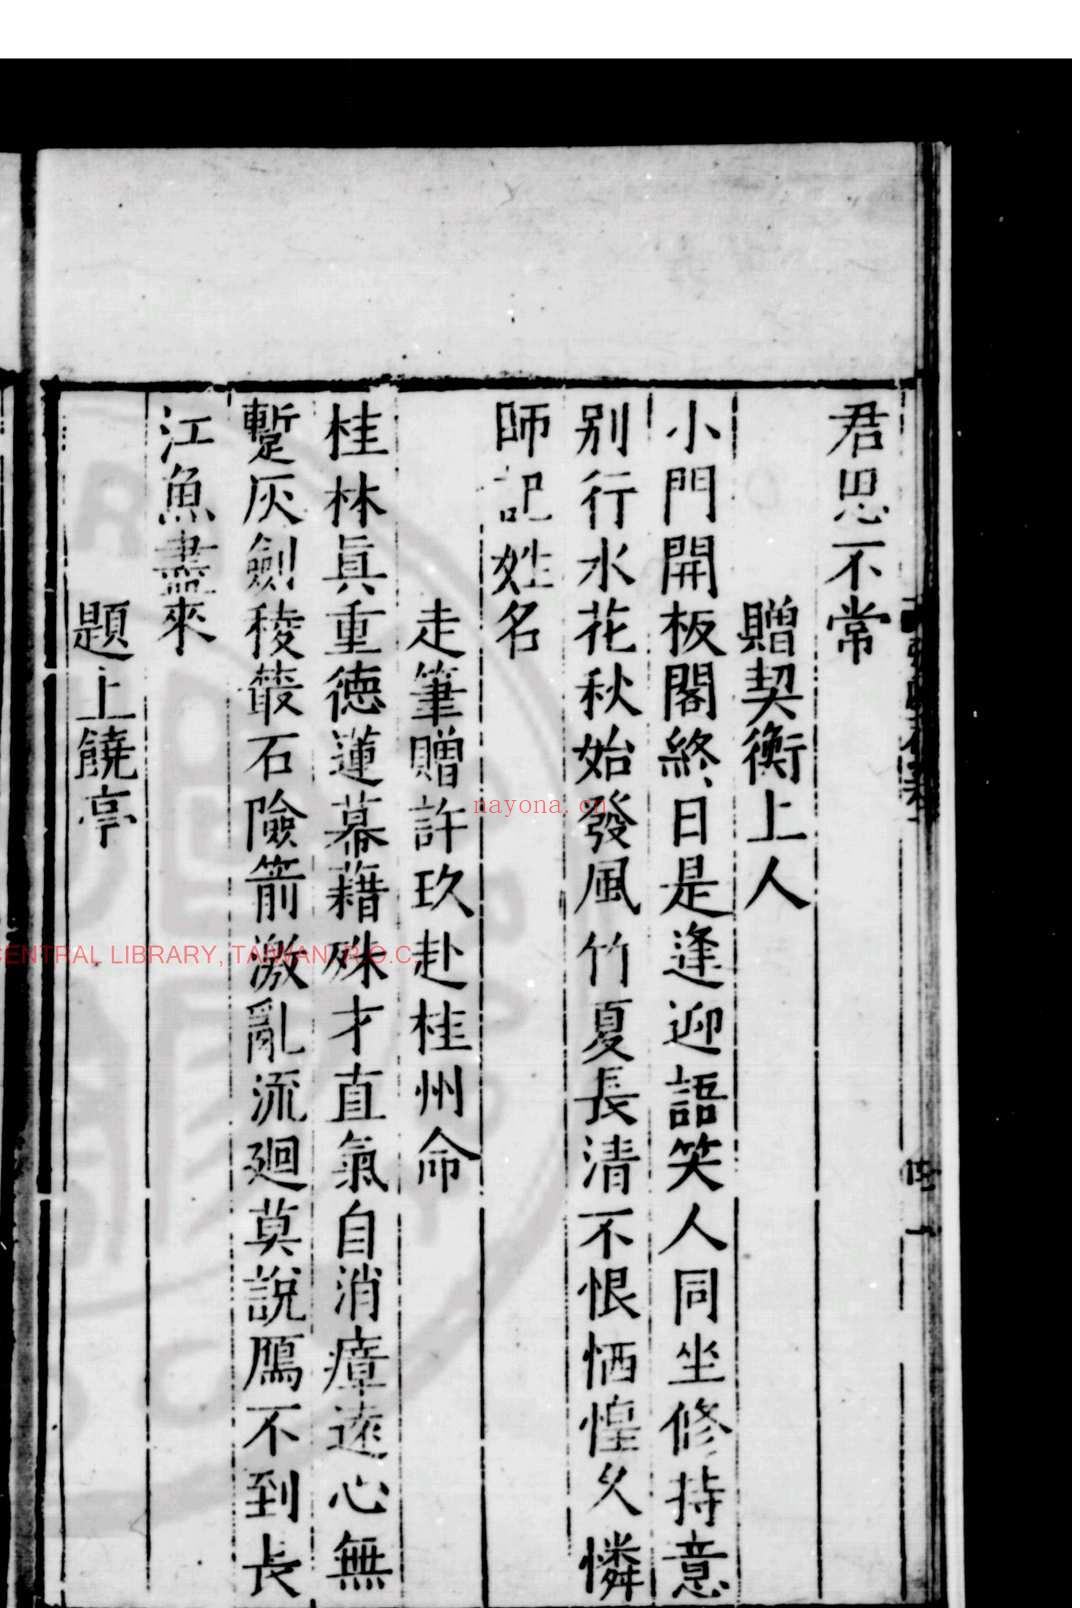 君思不常
贈契衡上人
小門開板閣終日是逢迎語笑人同坐修持意
别行水花秋始發風竹夏長清不恨恓惶久憐
師記姓名
走筆贈許玖赴桂州命
桂林真重德蓮幕藉殊才直氣自消瘴遠心無
蹔灰劍稜叢石險箭激亂流廻莫說鴈不到長
江魚盡來
題上饒亭
nayona.cn
CENTRAL LIBRARY, TAIWAN R.O.C.